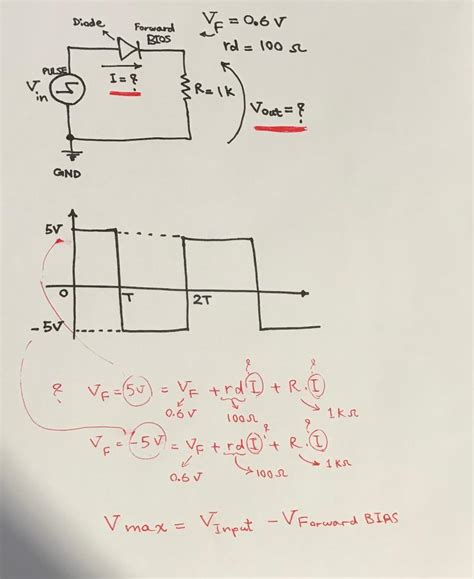 Diode
Forward
BIAS
V_F = 0.6 V
rd = 100 Ω
PULSE
V_in
I = ?
R = 1k
V_out = ?
GND
5V
0
T
2T
-5V
? ?
? V_F = 5V = V_F + rd I + R. I
0.6 V 100Ω 1kΩ
? ?
V_F = -5V = V_F + rd I + R. I
0.6 V 100Ω 1kΩ
V max = V Input - V Forward BIAS